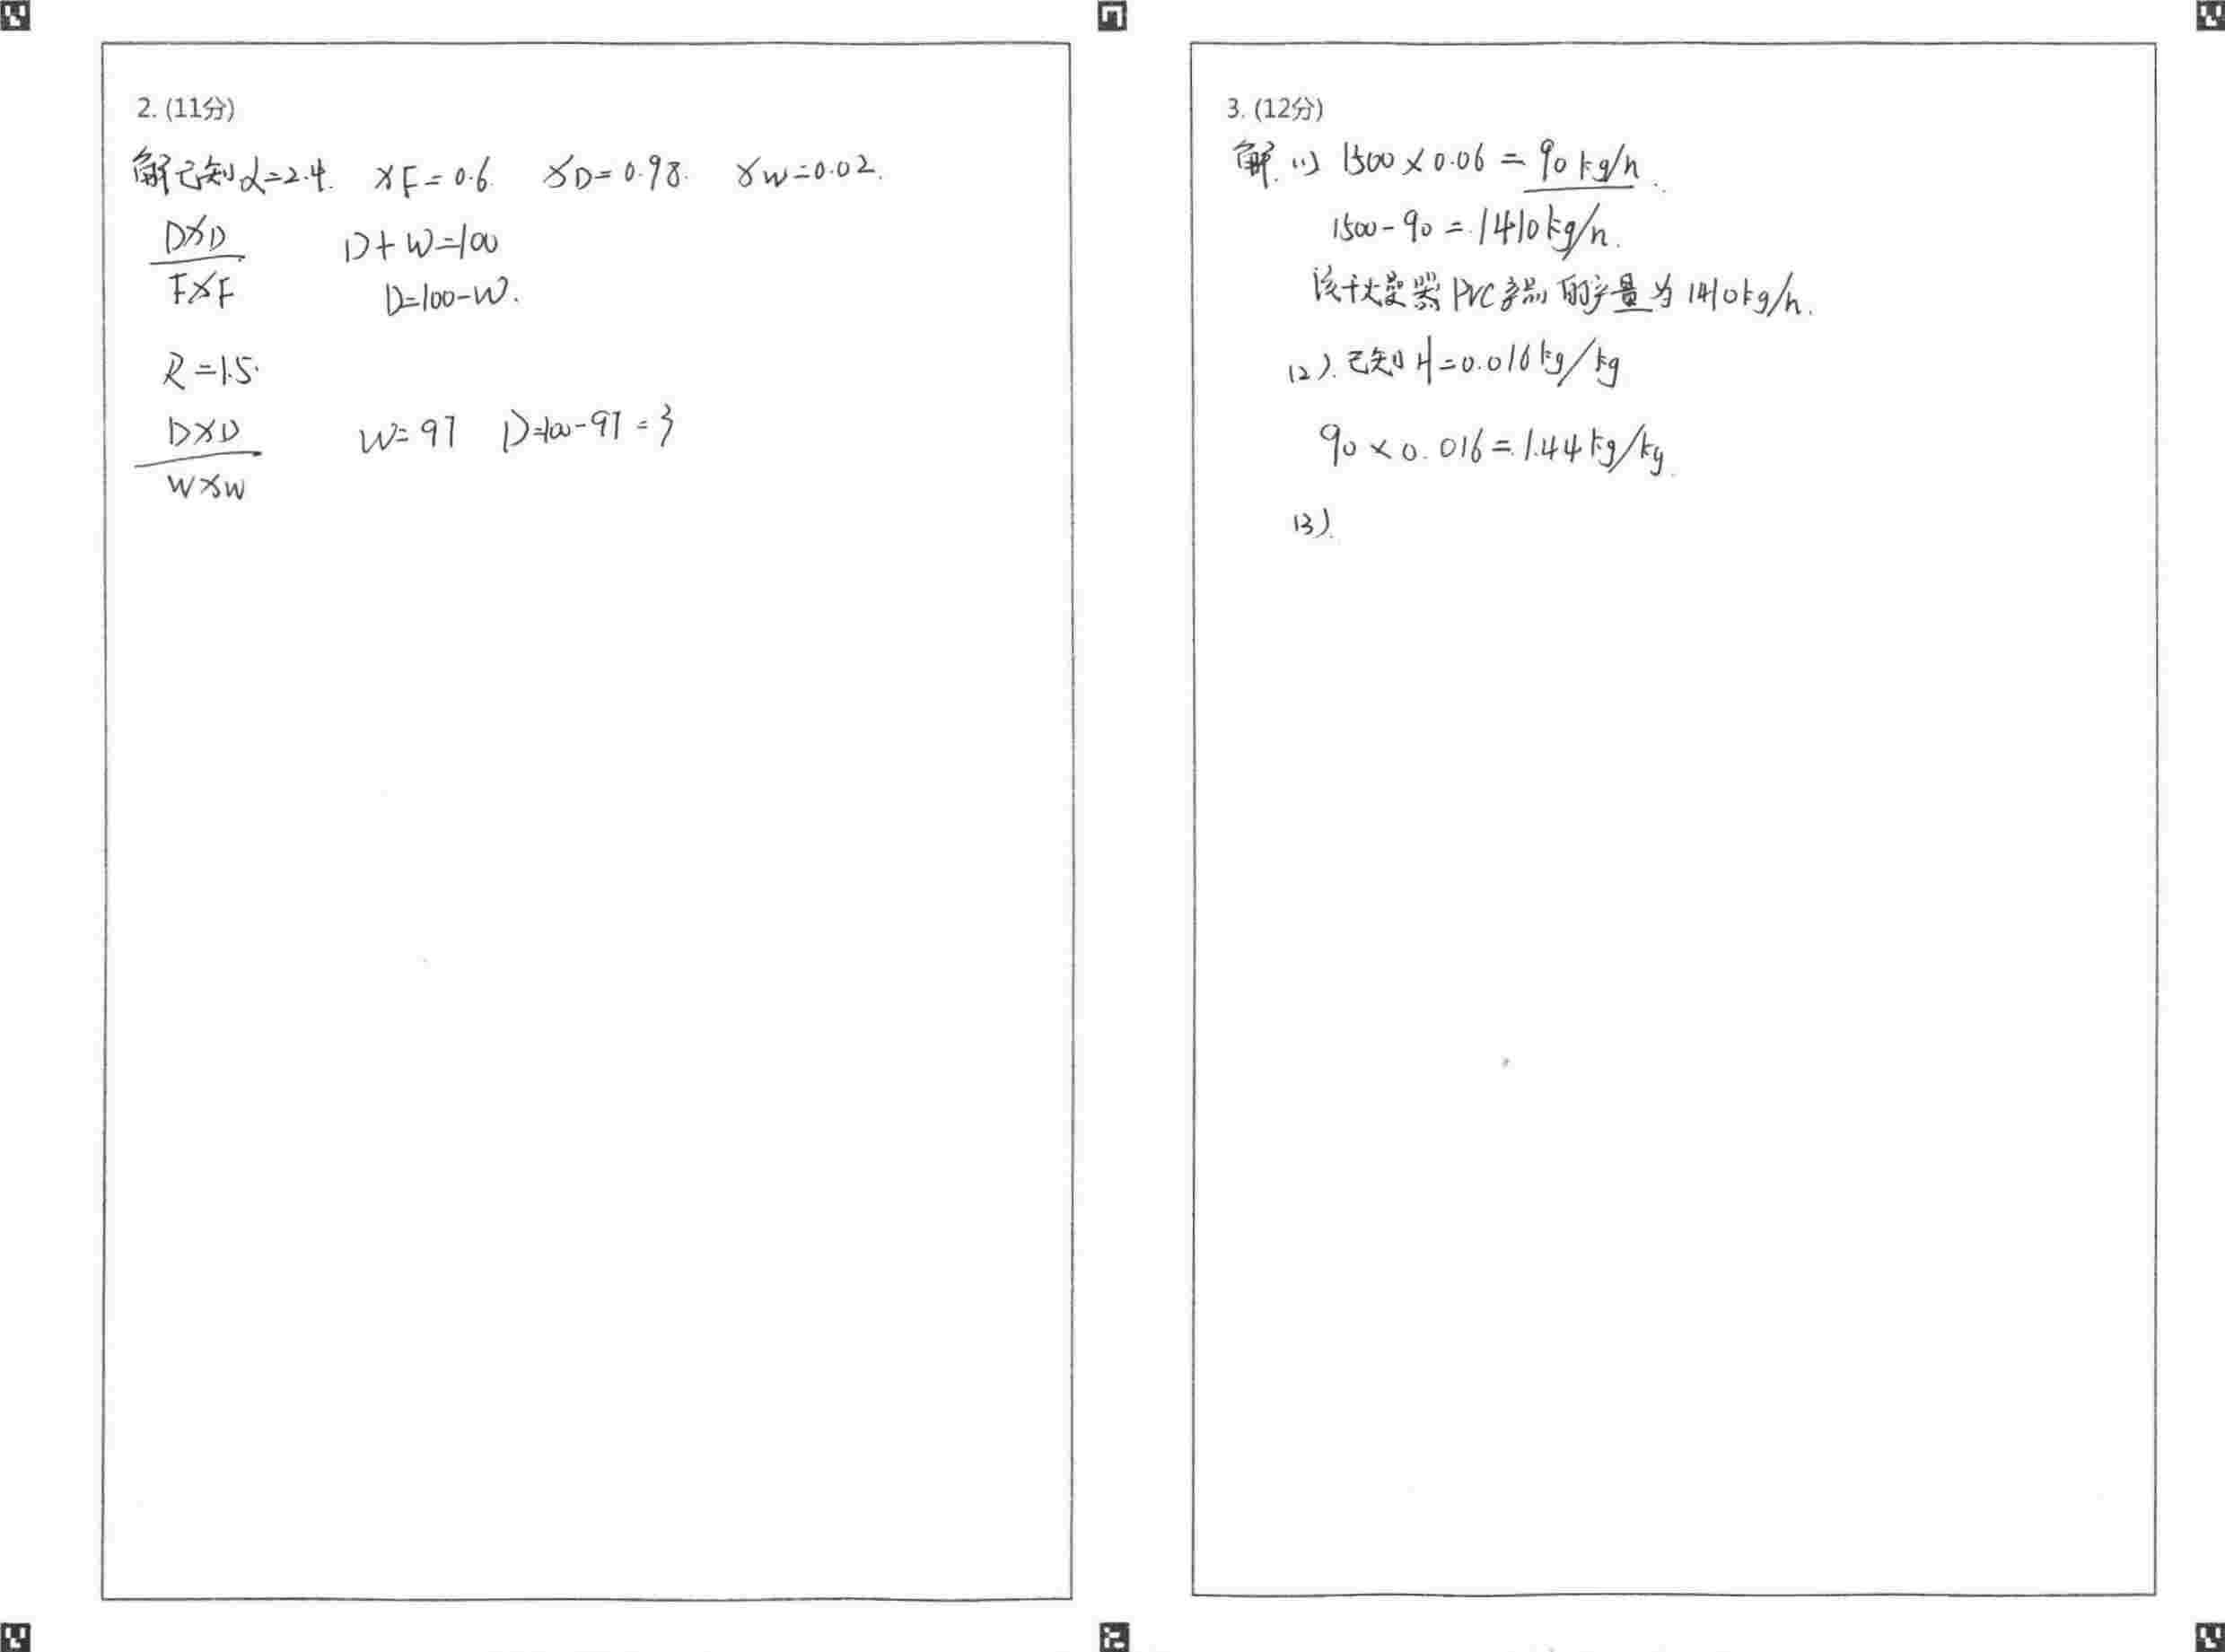 2. (11分)
解已知α=2.4. xF=0.6. xD=0.98. xW=0.02.
DxD
FxF
D+W=100
D=100-W.
R=1.5.
DxD
WxW
W=97 D=100-97=3
3. (12分)
解. (1) 1500×0.06=90kg/h.
1500-90=1410kg/h.
该干燥器PVC产品的产量为1410kg/h.
(2). 已知H=0.016kg/kg
90×0.016=1.44kg/kg.
(3).